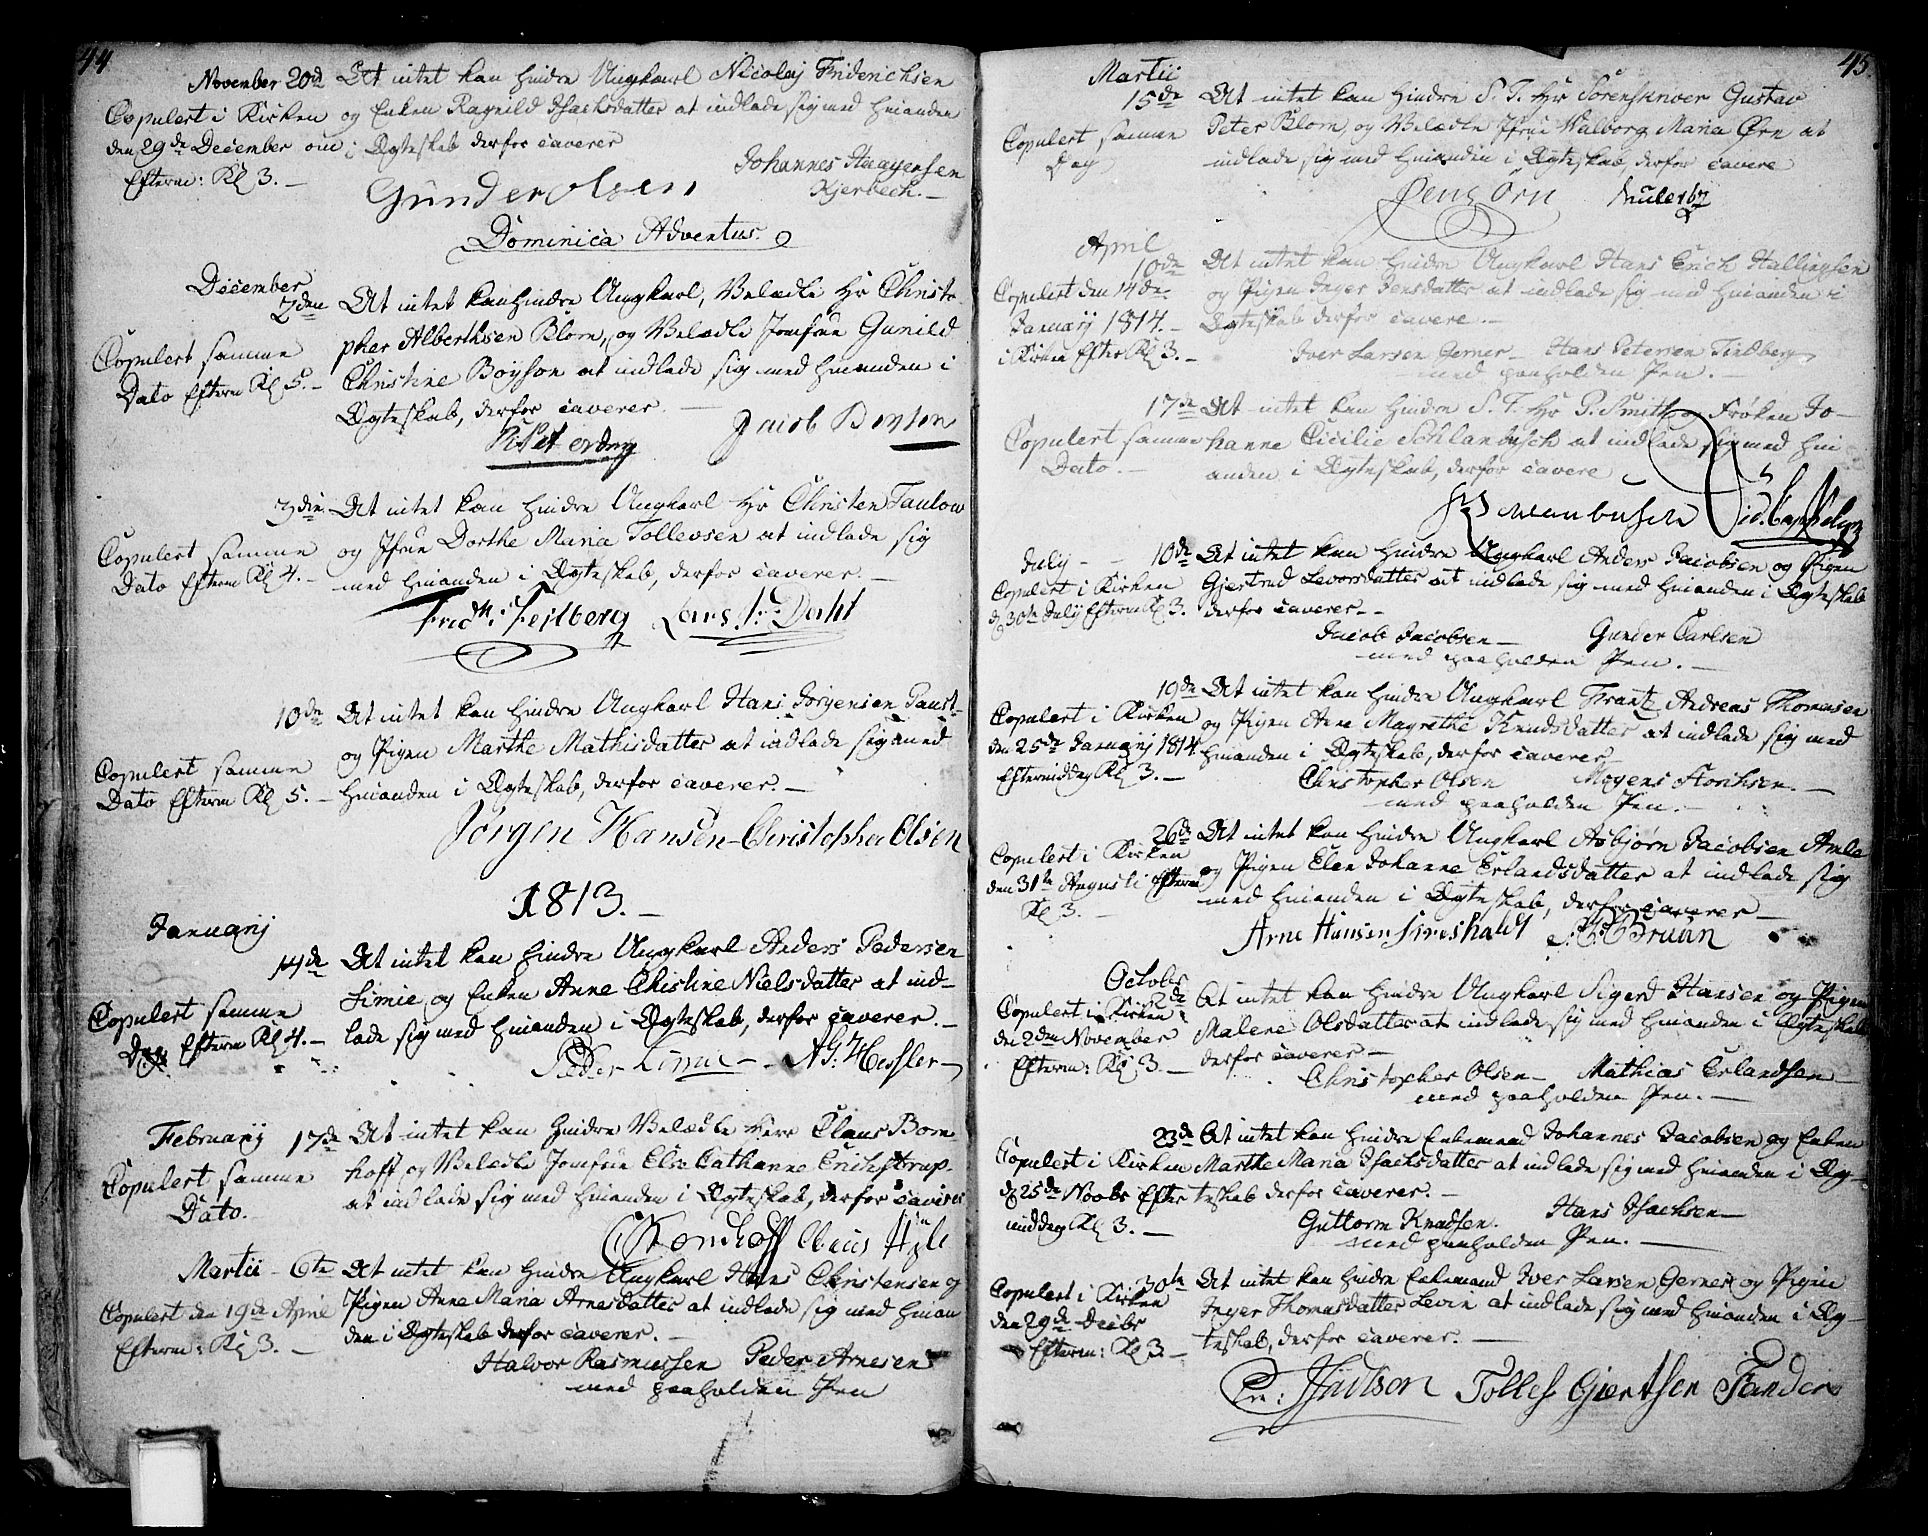 44
November 20de At intet kan hindre Ungkarl Nicolaj Friderichsen
Copulert i Kirken og Enken Ragnild Isachsdatter at indlade sig med hinanden
den 29de December om i Ægteskab derfor caverer
Efterm: Kl 3. Johannes Haagensen
Gunder Olsen Kjerbech.
Dominica Adventus.
December
7den At intet kan hindre Ungkarl, Velædle Hr Christo-
pher Alberthsen Blom, og Velædle Jomfrue Gunild
Copulert samme Christine Boyson at indlade sig med hinanden i
Dato Efterm Kl 5. Ægteskab, derfor caverer.
Jacob Boyson
9den At intet kan hindre Ungkarl Hr Christen Taulow
Copulert samme og Jfrue Dorthe Maria Tollevsen at indlade sig
Dato Efterm Kl 4. med hinanden i Ægteskab, derfor caverer.
Fridh: Feilberg Lars Dahl
10de At intet kan hindre Ungkarl Hans Jörgensen Paust-
og Pigen Marthe Mathisdatter at indlade sig med
Copulert samme
Dato Efterm Kl 5. hinanden i Ægteskab, derfor caverer.
Jørgen Hansen Christopher Olsen
1813.
Januarij
14de At intet kan hindre Ungkarl Anders Pedersen
Limie og Enken Anne Chistine Nielsdatter at ind-
Copulert samme lade sig med hinanden i Ægteskab, derfor caverer.
Dag Efterm Kl 4.
Peder Limie N G: Hessler
Februarij 17de At intet kan hindre Velædle Herr Claus Born
Copulert samme hoff og Velædle Jomfrue Else Cathanne Erichstrup
Dato. at indlade sig med hinanden i Ægteskab, derfor caverer
Bornhoff
Martii 6te At intet kan hindre Ungkarl Hans Christensen og
Copulert den 19de April Pigen Anne Maria Arnesdatter at indlade sig med hinan
Efterm: Kl 3. den i Ægteskab derfor caverer.
Halvor Rasmussen Peder Arnesen
med paaholden Pen
45.
Martii
15de At intet kan hindre S. T. Hr Sörenskriver Gustav
Copulert samme Peter Blom, og Velædle Jfrue Walborg Maria Ørn at
Dag indlade sig med hinanden i Ægteskab, derfor cavere
Jens Örn
April
10de At intet kan hindre Ungkarl Hans Erich Hallingsen
Copulert den 14de og Pigen Inger Jensdatter at indlade sig med hinanden i
Januarij 1814. Ægteskab derfor cavere.
i Kirken Efter Kl 3. Iver Larsen Gerner Hans Petersen Tindberg
med paaholden Pen.
17de At intet kan hindre S. T. Hr P. Smith og Frøken Jo-
Copulert samme hanne Cicilie Schlanbusch at indlade sig med hin
Dato. anden i Ægteskab, derfor cavere
Did. Cappelen
July 10de At intet kan hindre Ungkarl Anders Jacobsen og Pigen
Copulert i Kirken Gjertrud Levorsdatter at indlade sig med hinanden i Ægteskab
d 30te July Efterm Kl 3. derfor caverer.
Jacob Jacobsen Gunder Carlsen
med paaholden Pen.
19de At intet kan hindre Ungkarl Frantz Andreas Thomasen
Copulert i Kirken og Pigen Anne Magrethe Knudsdatter at indlade sig med
den 25de Januarij 1814 hinanden i Ægteskab, derfor caverer
Eftermiddag Kl 3. Christopher Olsen Mogens Storchsen.
med paaholden Pen.
26de At intet kan hindre Ungkarl Asbjørn Jacobsen Amle
Copulert i Kirken og Pigen Elen Johanne Erlandsdatter at indlade sig
den 31te Augusti Efterm med hinanden i Ægteskab, derfor caverer
Kl 3.
Arne Hansen Bruun
October
2de At intet kan hindre Ungkarl Sigerd Hansen og Pigen
Copulert i Kirken Malene Olsdatter at indlade sig med hinanden i Ægteskab
den 2den November derfor caverer
Efterm: Kl 3. Christopher Olsen Mathias Erlandsen
med paaholden Pen.
23de At intet kan hindre Enkemand Johannes Jacobsen og Enken
Copulert i Kirken Marthe Maria Isachsdatter at indlade sig med hinanden i Æg-
d 25de Novbr Efter teskab derfor caverer.
middag Kl 3. Guttorm Knudsen. Hans Isachsen
med paaholden Pen.
30te At intet kan hindre Enkemand Iver Larsen Gerner og Pigen
Copulert i Kirken Inger Thomasdatter Levin at indlade sig med hinanden i Æg-
den 29de Decbr teskab, derfor caverer.
Efterm: Kl 3.
Tollef Giertsen